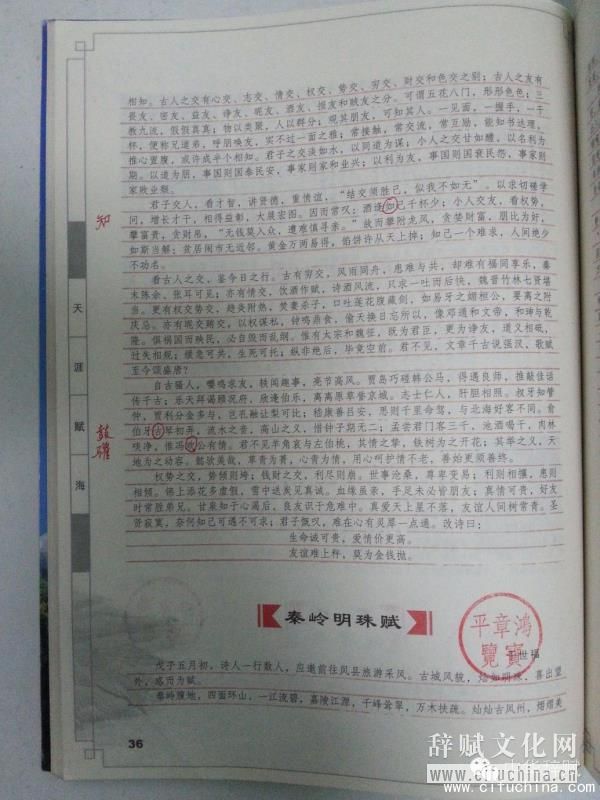 相知。古人之交有心交、志交、情交、权交、势交、穷交、财交和色交之别；古人之友有
畏友、密友、益友、诤友、昵友、酒友、损友和贼友之分。可谓五花八门，形形色色；三
教九流，假假真真；物以类聚，人以群分；观其朋友，可知其人。一见面，一握手，一干
杯，便称兄道弟，呼朋唤友，实不过一面之雅；常接触，常交流，常互励，能知书达理，
推心置腹，或许成半个相知。君子之交淡如水，以同道为谋；小人之交甘如醴，以名利为
期。以道为朋，事国则国泰民安，事家则家和业兴；以利为友，事国则国衰民怨，事家则
家败业颓。
君子交人，看才智，讲贤德，重情谊，“结交须胜己，似我不如无”。以求切磋学
问，增长才干，相得益彰，大展宏图。因而常叹：酒逢如己千杯少；小人交友，看权势，
攀富贵，贪财帛，“无钱莫入众，遭难慎寻亲。”故而攀附龙凤，贪婪财富，朋比为奸，
如斯当解：贫居闹市无近邻。黄金万两易得，馅饼许从天上掉；知己一个难求，人间绝少
不功名。
看古人之交，鉴今日之行。古有穷交，风雨同舟，患难与共，却难有福同享乐，秦
末陈余、张耳可见；亦有情交，饮酒作赋，诗酒风流，只求一吐而后快，魏晋竹林七贤堪
当。更有权交势交，趋炎附热，焚妻杀子，口吐莲花腹藏剑，如易牙之媚桓公，要离之附
庆忌。亦有昵交贿交，以权谋私，钟鸣鼎食，偷天换日忘所以，像邓通和文帝，和珅与乾
隆。俱祸国而殃民，必自毁而乱纲。惟有太宗和魏征，既为君臣，更为诤友，道义相砥，
过失相规；缓急可共，生死可托；纵非绝后，毕竟空前。君不见，文章千古说强汉，歌赋
至今颂盛唐？
自古骚人，嘤鸣求友，轶闻趣事，亮节高风。贾岛巧碰韩公马，得遇良师，推敲佳话
传千古；乐天拜谒顾况府，欣逢伯乐，离离原草誉京城。志士仁人，肝胆相照。叔牙知管
仲，贾利分金多与，岂孔融让梨可比；嵇康善吕安，思则千里命驾，与北海好客不同。俞
伯牙古琴初弄，流水之音，高山之义，惜钟子期无二；孟尝君门客三千，池酒喝干，肉林
啖净，惟冯欢公有情。君不见羊角哀与左伯桃，其情之挚，铁树为之开花；其举之义，天
地为之动容。懿欤美哉，草青为菁，心青为情，用心呵护情不老，善始更须善终。
权势之交，势倾则绝；钱财之交，利尽则崩。世事沧桑，尊卑变易；利则相攘，患则
相倾。锦上添花多虚假，雪中送炭见真诚。血缘虽亲，手足未必皆朋友；真情可贵，好友
时常胜弟兄。甘泉知于心渴后，良友识于危难中。真爱天上星不落，友谊人间树常青。圣
贤寂寞，奈何知己可遇不可求；君子慨叹，难在心有灵犀一点通。改诗曰：
生命诚可贵，爱情价更高。
友谊难上秤，莫为金钱抛。
秦岭明珠赋
王世福
戊子五月初，诗人一行数人，应邀前往凤县旅游采风。古城风貌，灿如明珠，喜出望
外，感而为赋。
秦岭腹地，四面环山，一江流碧，嘉陵江源，千峰耸翠，万木扶疏。灿灿古凤州，熠熠美
36
知
天涯赋海
鸿章平
宝览
中华辞赋
辞赋文化网
www.cifuchina.cn
www.cifuchina.com